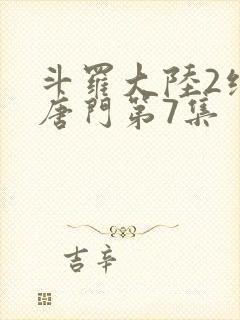 斗羅大陸2
唐門第7集
吉辛